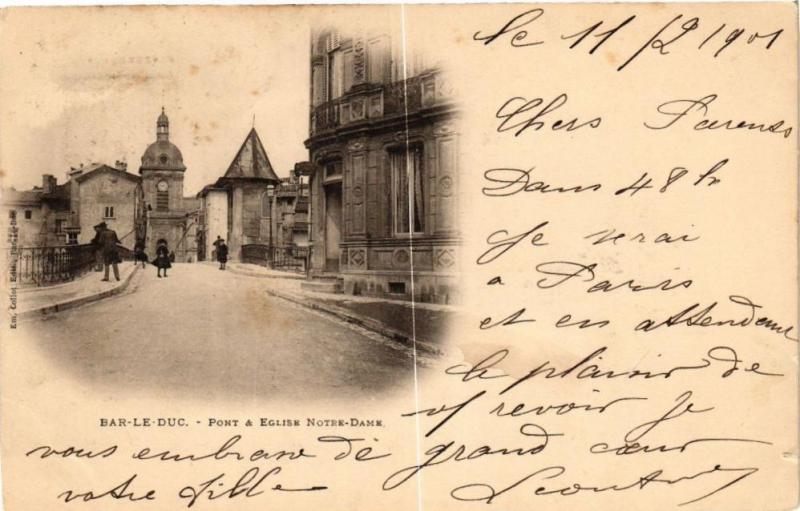 le 11/2 1901
Chers Parents
Dans 48 h
Je serai
a Paris
et en attendant
le plaisir de
vs revoir Je
vous embrasse de grand cœur
votre fille
BAR-LE-DUC. - PONT & EGLISE NOTRE-DAME.
Em. Collot Edit.